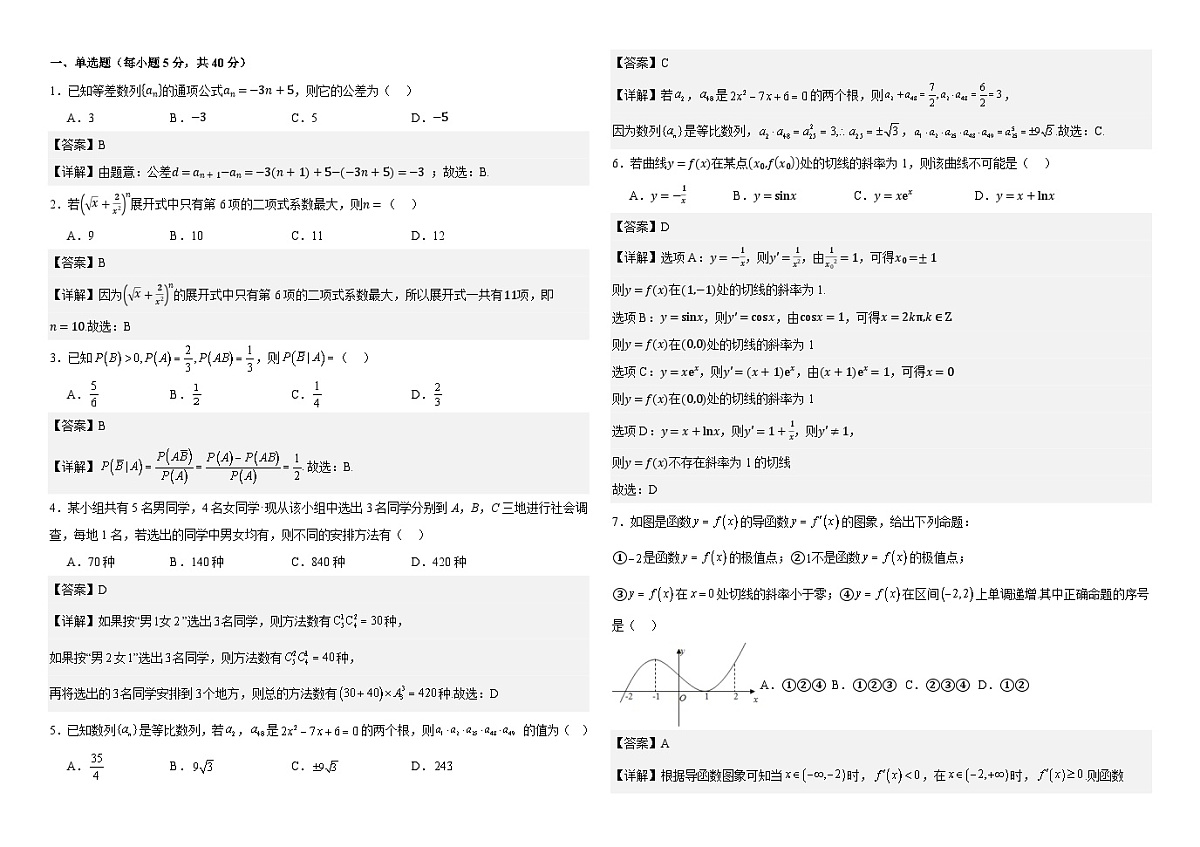 一、单选题（每小题5分，共40分）
1．已知等差数列{aₙ}的通项公式aₙ＝−3n＋5，则它的公差为（　）
A．3　B．−3　C．5　D．−5
【答案】B
【详解】由题意：公差d＝aₙ₊₁−aₙ＝−3(n＋1)＋5−(−3n＋5)＝−3 ；故选：B.
2．若(√x＋2/x²)ⁿ展开式中只有第6项的二项式系数最大，则n＝（　）
A．9　B．10　C．11　D．12
【答案】B
【详解】因为(√x＋2/x²)ⁿ的展开式中只有第6项的二项式系数最大，所以展开式一共有11项，即
n＝10.故选：B
3．已知P(B)>0,P(A)=2/3,P(AB)=1/3，则P(B̅|A)=（　）
A．5/6　B．1/2　C．1/4　D．2/3
【答案】B
【详解】P(B̅|A)=P(AB̅)/P(A)=(P(A)−P(AB))/P(A)=1/2.故选：B.
4．某小组共有5名男同学，4名女同学·现从该小组中选出3名同学分别到A，B，C三地进行社会调
查，每地1名，若选出的同学中男女均有，则不同的安排方法有（　）
A．70种　B．140种　C．840种　D．420种
【答案】D
【详解】如果按“男1女2”选出3名同学，则方法数有C₅¹C₄²＝30种，
如果按“男2女1”选出3名同学，则方法数有C₅²C₄¹＝40种，
再将选出的3名同学安排到3个地方，则总的方法数有(30+40)×A₃³＝420种.故选：D
5．已知数列{aₙ}是等比数列，若a₂，a₄₈是2x²−7x+6=0的两个根，则a₁·a₂·a₂₅·a₄₈·a₄₉ 的值为（　）
A．35/4　B．9√3　C．±9√3　D．243
【答案】C
【详解】若a₂，a₄₈是2x²−7x+6=0的两个根，则a₂+a₄₈=7/2,a₂·a₄₈=6/2=3，
因为数列{aₙ}是等比数列，a₂·a₄₈=a₂₅²=3,∴a₂₅=±√3，a₁·a₂·a₂₅·a₄₈·a₄₉=a₂₅⁵=±9√3.故选：C.
6．若曲线y＝f(x)在某点(x₀,f(x₀))处的切线的斜率为1，则该曲线不可能是（　）
A．y＝−1/x　B．y＝sinx　C．y＝xeˣ　D．y＝x＋lnx
【答案】D
【详解】选项A：y＝−1/x，则y′＝1/x²，由1/x₀²＝1，可得x₀＝±1
则y＝f(x)在(1,−1)处的切线的斜率为1.
选项B：y＝sinx，则y′＝cosx，由cosx＝1，可得x＝2kπ,k∈Z
则y＝f(x)在(0,0)处的切线的斜率为1
选项C：y＝xeˣ，则y′＝(x＋1)eˣ，由(x＋1)eˣ＝1，可得x＝0
则y＝f(x)在(0,0)处的切线的斜率为1
选项D：y＝x＋lnx，则y′＝1＋1/x，则y′≠1，
则y＝f(x)不存在斜率为1的切线
故选：D
7．如图是函数y＝f(x)的导函数y＝f′(x)的图象，给出下列命题：
①−2是函数y＝f(x)的极值点；②1不是函数y＝f(x)的极值点；
③y＝f(x)在x＝0处切线的斜率小于零；④y＝f(x)在区间(−2,2)上单调递增.其中正确命题的序号
是（　）
y
-2　-1　O　1　2　x
A．①②④ B．①②③ C．②③④ D．①②
【答案】A
【详解】根据导函数图象可知当x∈(−∞,−2)时，f′(x)<0，在x∈(−2,+∞)时，f′(x)≥0.则函数